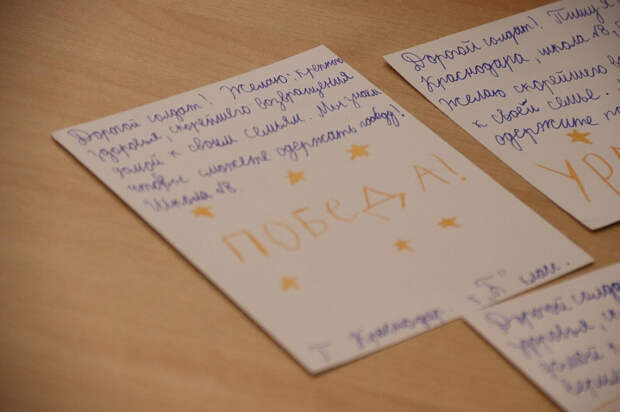 Дорогой солдат! Желаю: Крепкого
здоровья, скорейшего возвращения
домой к своим семьям. Мы знаем
чтобы сможете одержать победу!
Школа 18.
ПОБЕДА!
Г Краснодар. "Б" класс.
Дорогой солдат! Пишу
Краснодара, школа 18,
Желаю скорейшего
к своей семье.
одержите
УРА
Дорогой
здоровья,
домой к